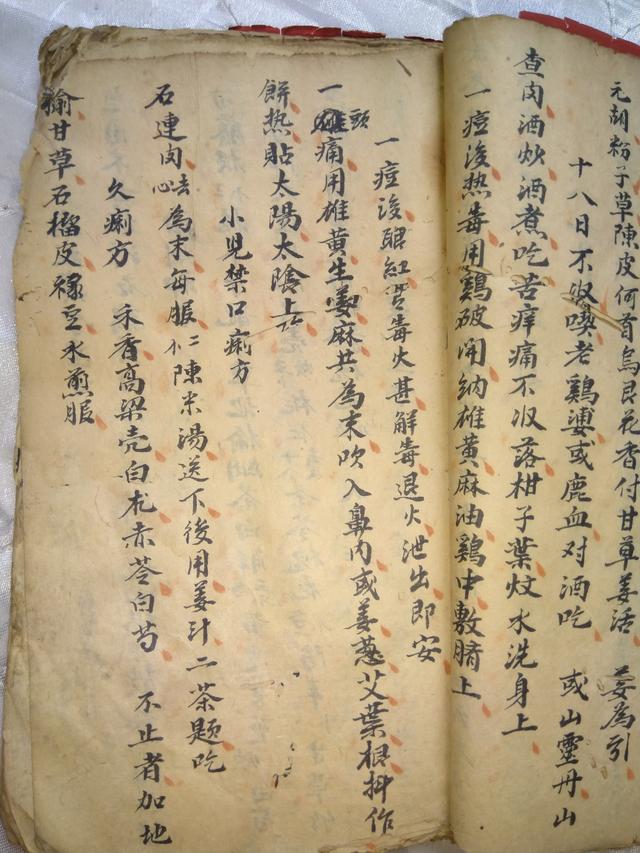 元胡粉子草陳皮何首烏良花香付甘草姜活 姜為引
十八日不収喫老鷄婆或鹿血対酒吃 或山靈丹山
查肉酒炒酒煮吃苦痒痛不収落柑子葉炆水洗身上
一痘後热毒用鷄破開納雄黄麻油鷄中敷臍上
一痘後眼紅苦毒火甚解毒退火泄出即安
一頭痛用雄黄生姜麻共為末吹入鼻内或姜葱艾葉根抖作
餅热貼太陽太陰上
小児禁口痢方
石連肉去心為末每服二陳米湯送下後用姜汁二茶題吃
久痢方 禾香高梁壳白朮赤苓白芍 不止者加地
榆甘草石榴皮祿豆水煎服